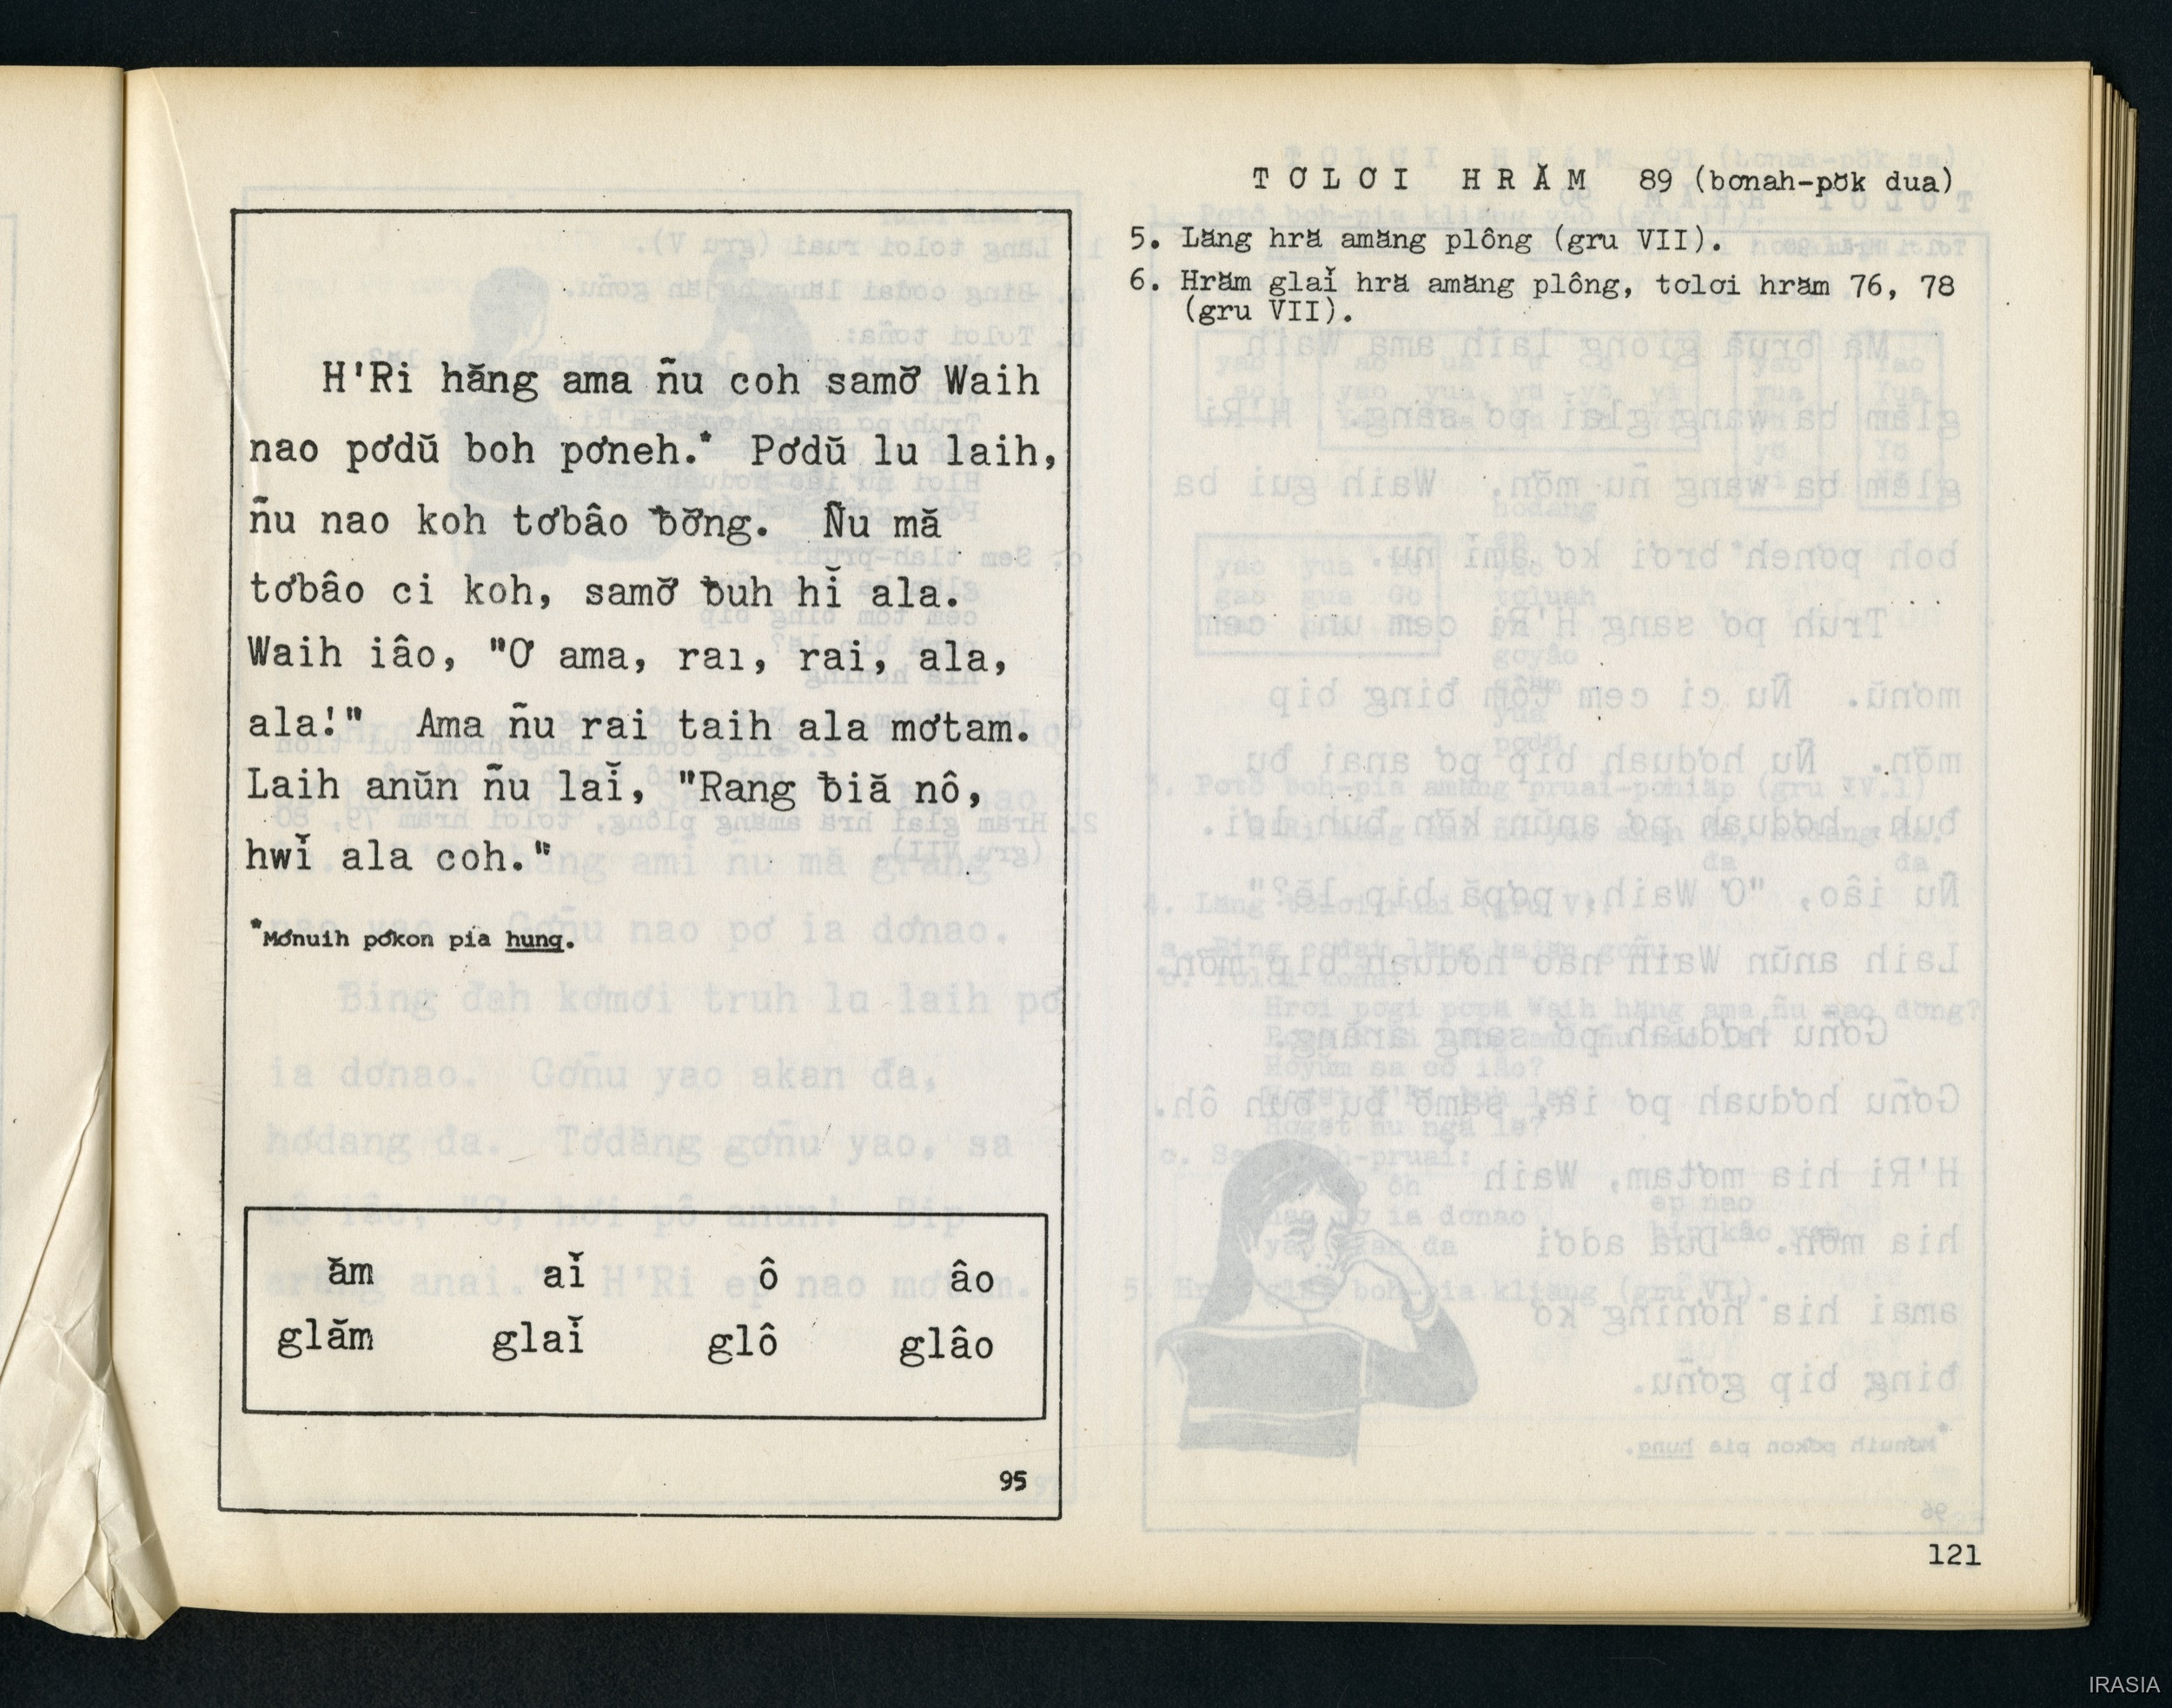 H'Ri hăng ama ñu coh samơ̆ Waih
nao pơdŭ boh pơneh.* Pơdŭ lu laih,
ñu nao koh tơbâo ƀơ̆ng. Ñu mă
tơbâo ci koh, samơ̆ ƀuh hĭ ala.
Waih iâo, "Ơ ama, rai, rai, ala,
ala!" Ama ñu rai taih ala mơtam.
Laih anŭn ñu laĭ, "Rang ƀiă nô,
hwĭ ala coh."
*Mơnuih pơkon pia hung.
ăm aĭ ô âo
glăm glaĭ glô glâo
95
TƠLƠI HRĂM 89 (bơnah-pŏk dua)
5. Lăng hră amăng plông (gru VII).
6. Hrăm glaĭ hră amăng plông, tơlơi hrăm 76, 78
(gru VII).
121
IRASIA